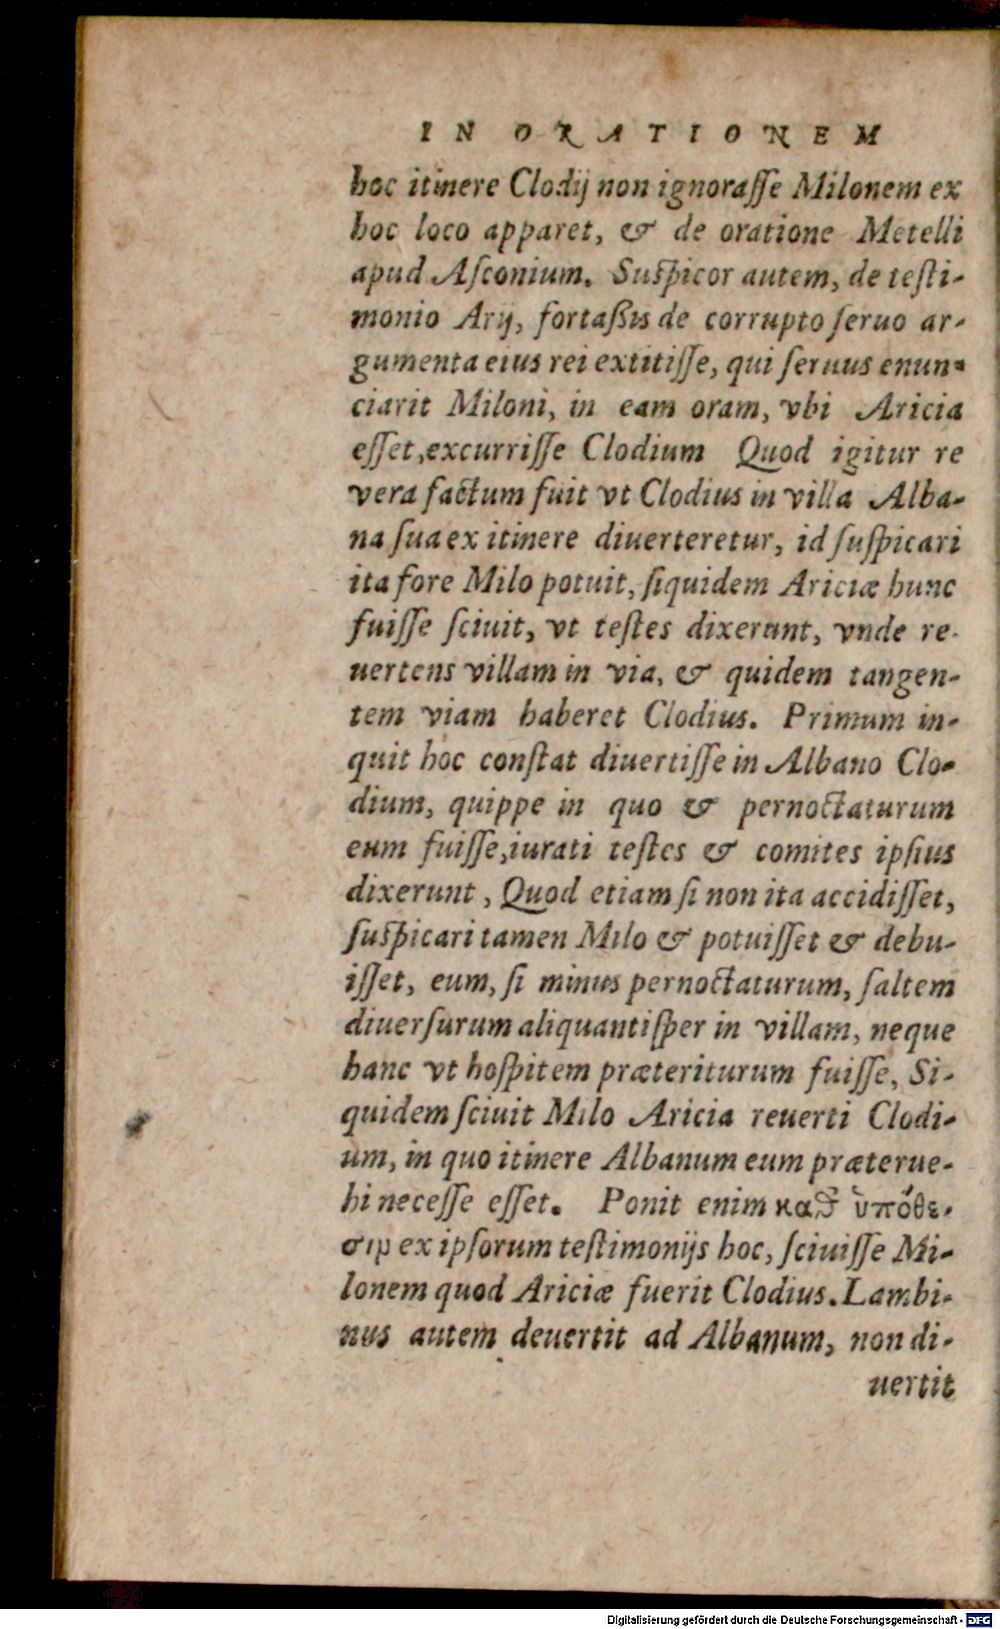 IN ORATIONEM
hoc itinere Clodij non ignoraſſe Milonem ex
hoc loco apparet, & de oratione Metelli
apud Aſconium. Suſpicor autem, de teſti-
monio Arij, fortaßis de corrupto ſeruo ar-
gumenta eius rei extitiſſe, qui ſeruus enun-
ciarit Miloni, in eam oram, vbi Aricia
eſſet, excurriſſe Clodium Quod igitur re
vera factum fuit vt Clodius in villa Alba-
na ſua ex itinere diuerteretur, id ſuſpicari
ita fore Milo potuit, ſiquidem Ariciæ hunc
fuiſſe ſciuit, vt teſtes dixerunt, vnde re-
uertens villam in via, & quidem tangen-
tem viam haberet Clodius. Primum in-
quit hoc conſtat diuertiſſe in Albano Clo-
dium, quippe in quo & pernoctaturum
eum fuiſſe, iurati teſtes & comites ipſius
dixerunt, Quod etiam ſi non ita accidiſſet,
ſuſpicari tamen Milo & potuiſſet & debu-
iſſet, eum, ſi minus pernoctaturum, ſaltem
diuerſurum aliquantiſper in villam, neque
hanc vt hoſpitem præteriturum fuiſſe, Si-
quidem ſciuit Milo Aricia reuerti Clodi-
um, in quo itinere Albanum eum præterue-
hi neceſſe eſſet. Ponit enim καθ' ὑπόθε-
σιν ex ipſorum teſtimonijs hoc, ſciuiſſe Mi-
lonem quod Ariciæ fuerit Clodius. Lambi-
nus autem deuertit ad Albanum, non di-
uertit
Digitalisierung gefördert durch die Deutsche Forschungsgemeinschaft - DFG